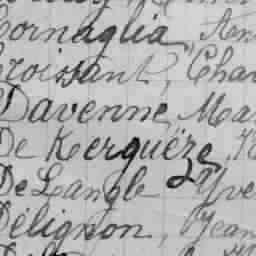 Cornaglia, An
Croissant, Char
Davenne, Mar
De Kerguéze,
De Langle Yve
Délignon, Jean